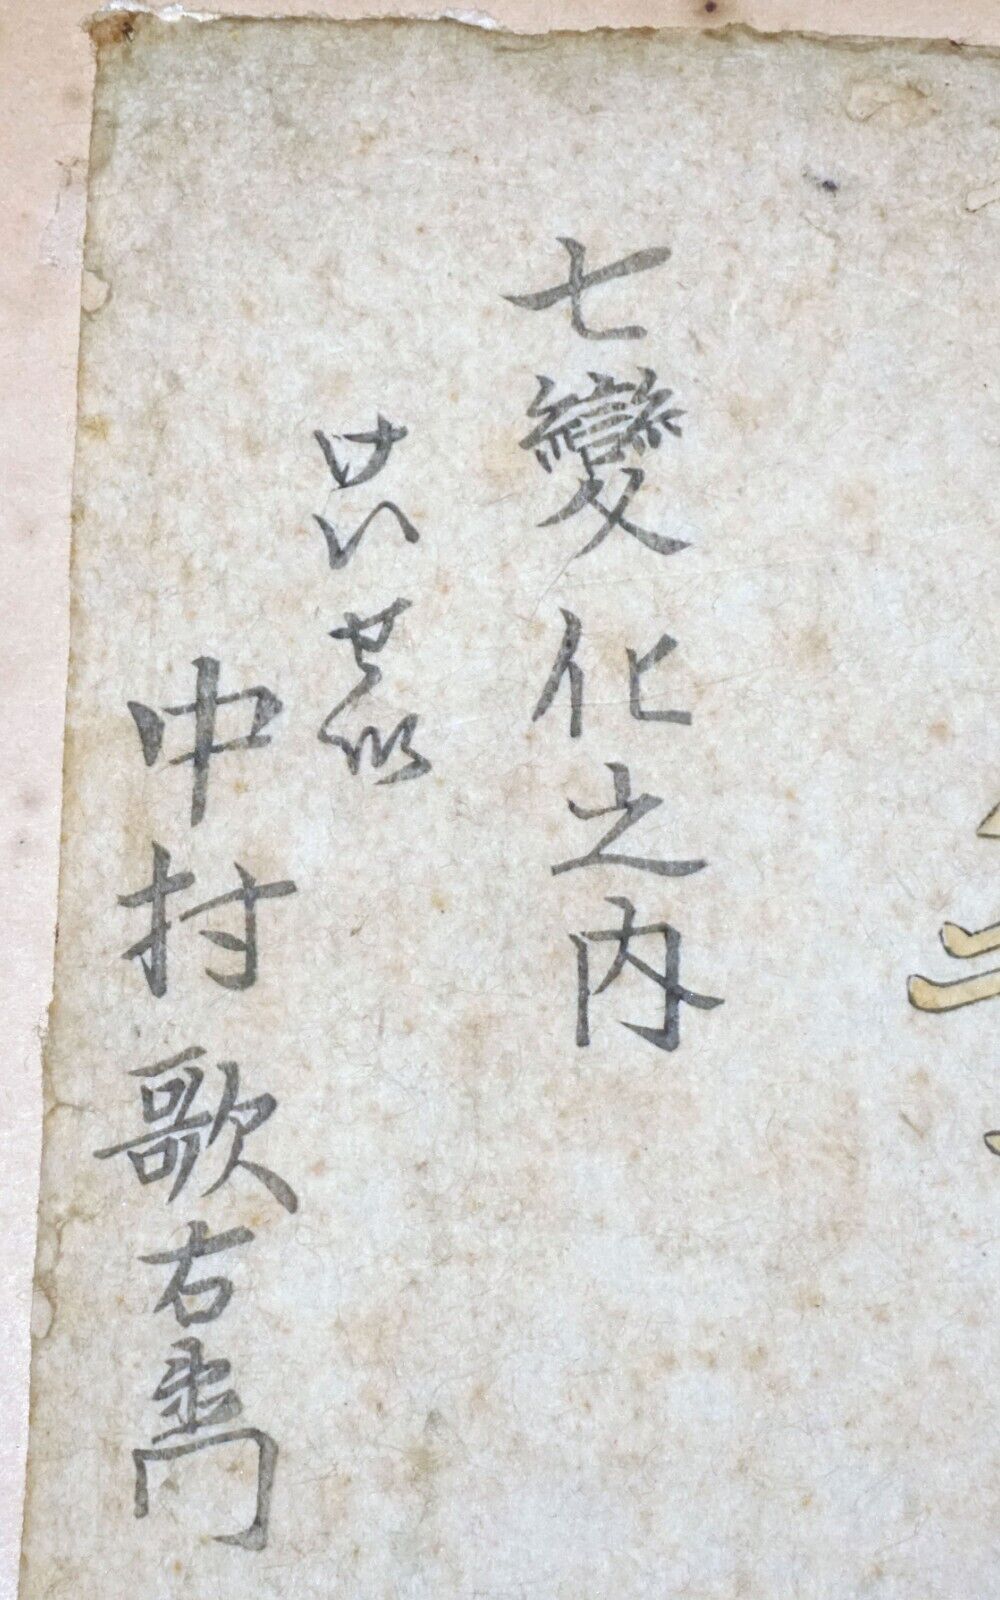 七變化之内
けいせい
中村歌右衞門